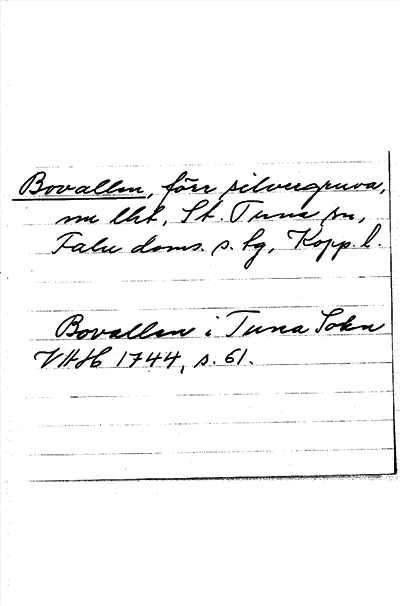 Bovallen, förr silvergruva,
nu lht, St. Tuna sn,
Falu doms. s. tg, Kopp. l.
Bovallen i Tuna Sokn
VAH 1744, s. 61.